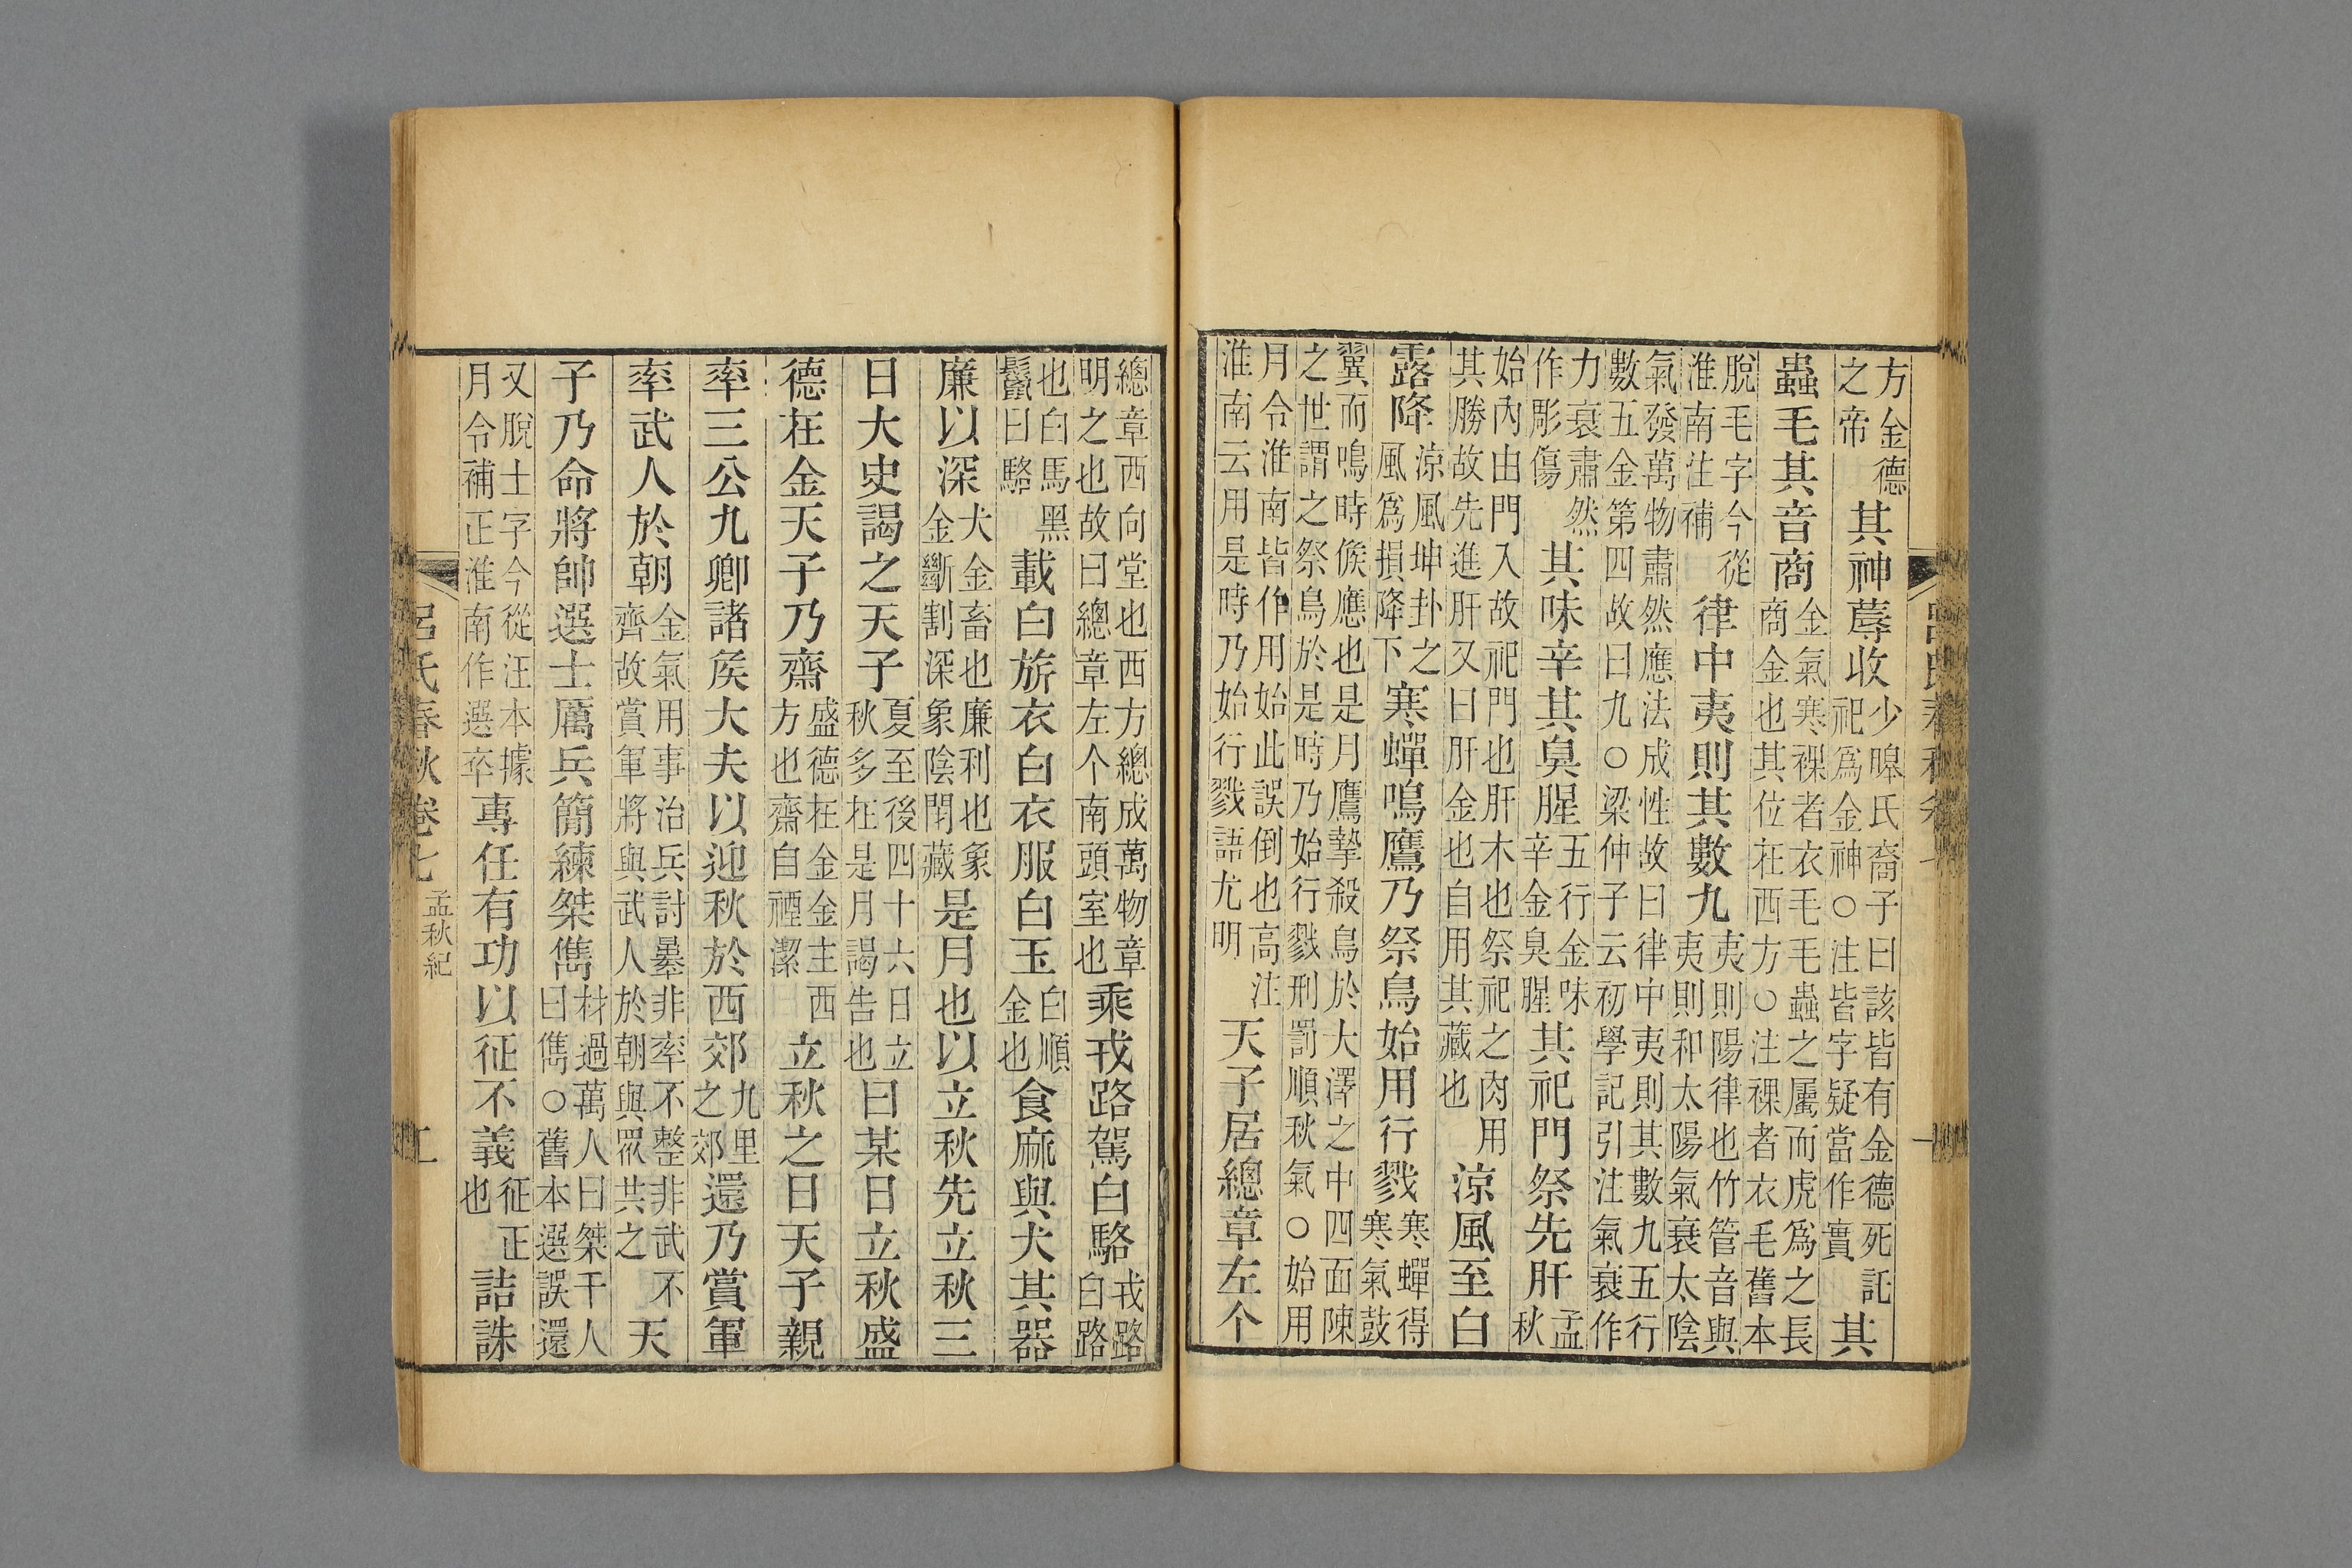 方金德之帝其神蓐收少皞氏裔子曰該皆有金德死託祀爲金神○注皆字疑當作實其
蟲毛其音商金氣寒裸者衣毛毛蟲之屬而虎爲之長商金也其位在西方○注裸者衣毛舊本
脫毛字今從淮南注補律中夷則其數九夷則陽律也竹管音與夷則和太陽氣衰太陰
氣發萬物肅然應法成性故曰律中夷則其數九五行數五金第四故曰九○梁仲子云初學記引注氣衰作
力衰肅然作彫傷其味辛其臭腥五行金味辛金臭腥其祀門祭先肝孟秋
始內由門入故祀門也肝木也祭祀之肉用其勝故先進肝又曰肝金也自用其藏也涼風至白
露降涼風坤卦之風爲損降下寒蟬鳴鷹乃祭鳥始用行戮寒蟬得寒氣鼓
翼而鳴時候應也是月鷹摯殺鳥於大澤之中四面陳之世謂之祭鳥於是時乃始行戮刑罰順秋氣○始用
月令淮南皆作用始此誤倒也高注淮南云用是時乃始行戮語尤明天子居總章左个
總章西向堂也西方總成萬物章明之也故曰總章左个南頭室也乘戎路駕白駱戎路白路
也白馬黑鬣曰駱載白旂衣白衣服白玉白順金也食麻與犬其器
廉以深犬金畜也廉利也象金斷割深象陰閉藏是月也以立秋先立秋三
日大史謁之天子夏至後四十六日立秋多在是月謁告也曰某日立秋盛
德在金天子乃齋盛德在金金主西方也齋自禋潔立秋之日天子親
率三公九卿諸侯大夫以迎秋於西郊九里之郊還乃賞軍
率武人於朝金氣用事治兵討暴非率不整非武不齊故賞軍將與武人於朝與眾共之天
子乃命將帥選士厲兵簡練桀儁材過萬人曰桀千人曰儁○舊本選誤還
又脫士字今從汪本據月令補正淮南作選卒專任有功以征不義征正也詰誅
呂氏春秋卷七 孟秋紀 二